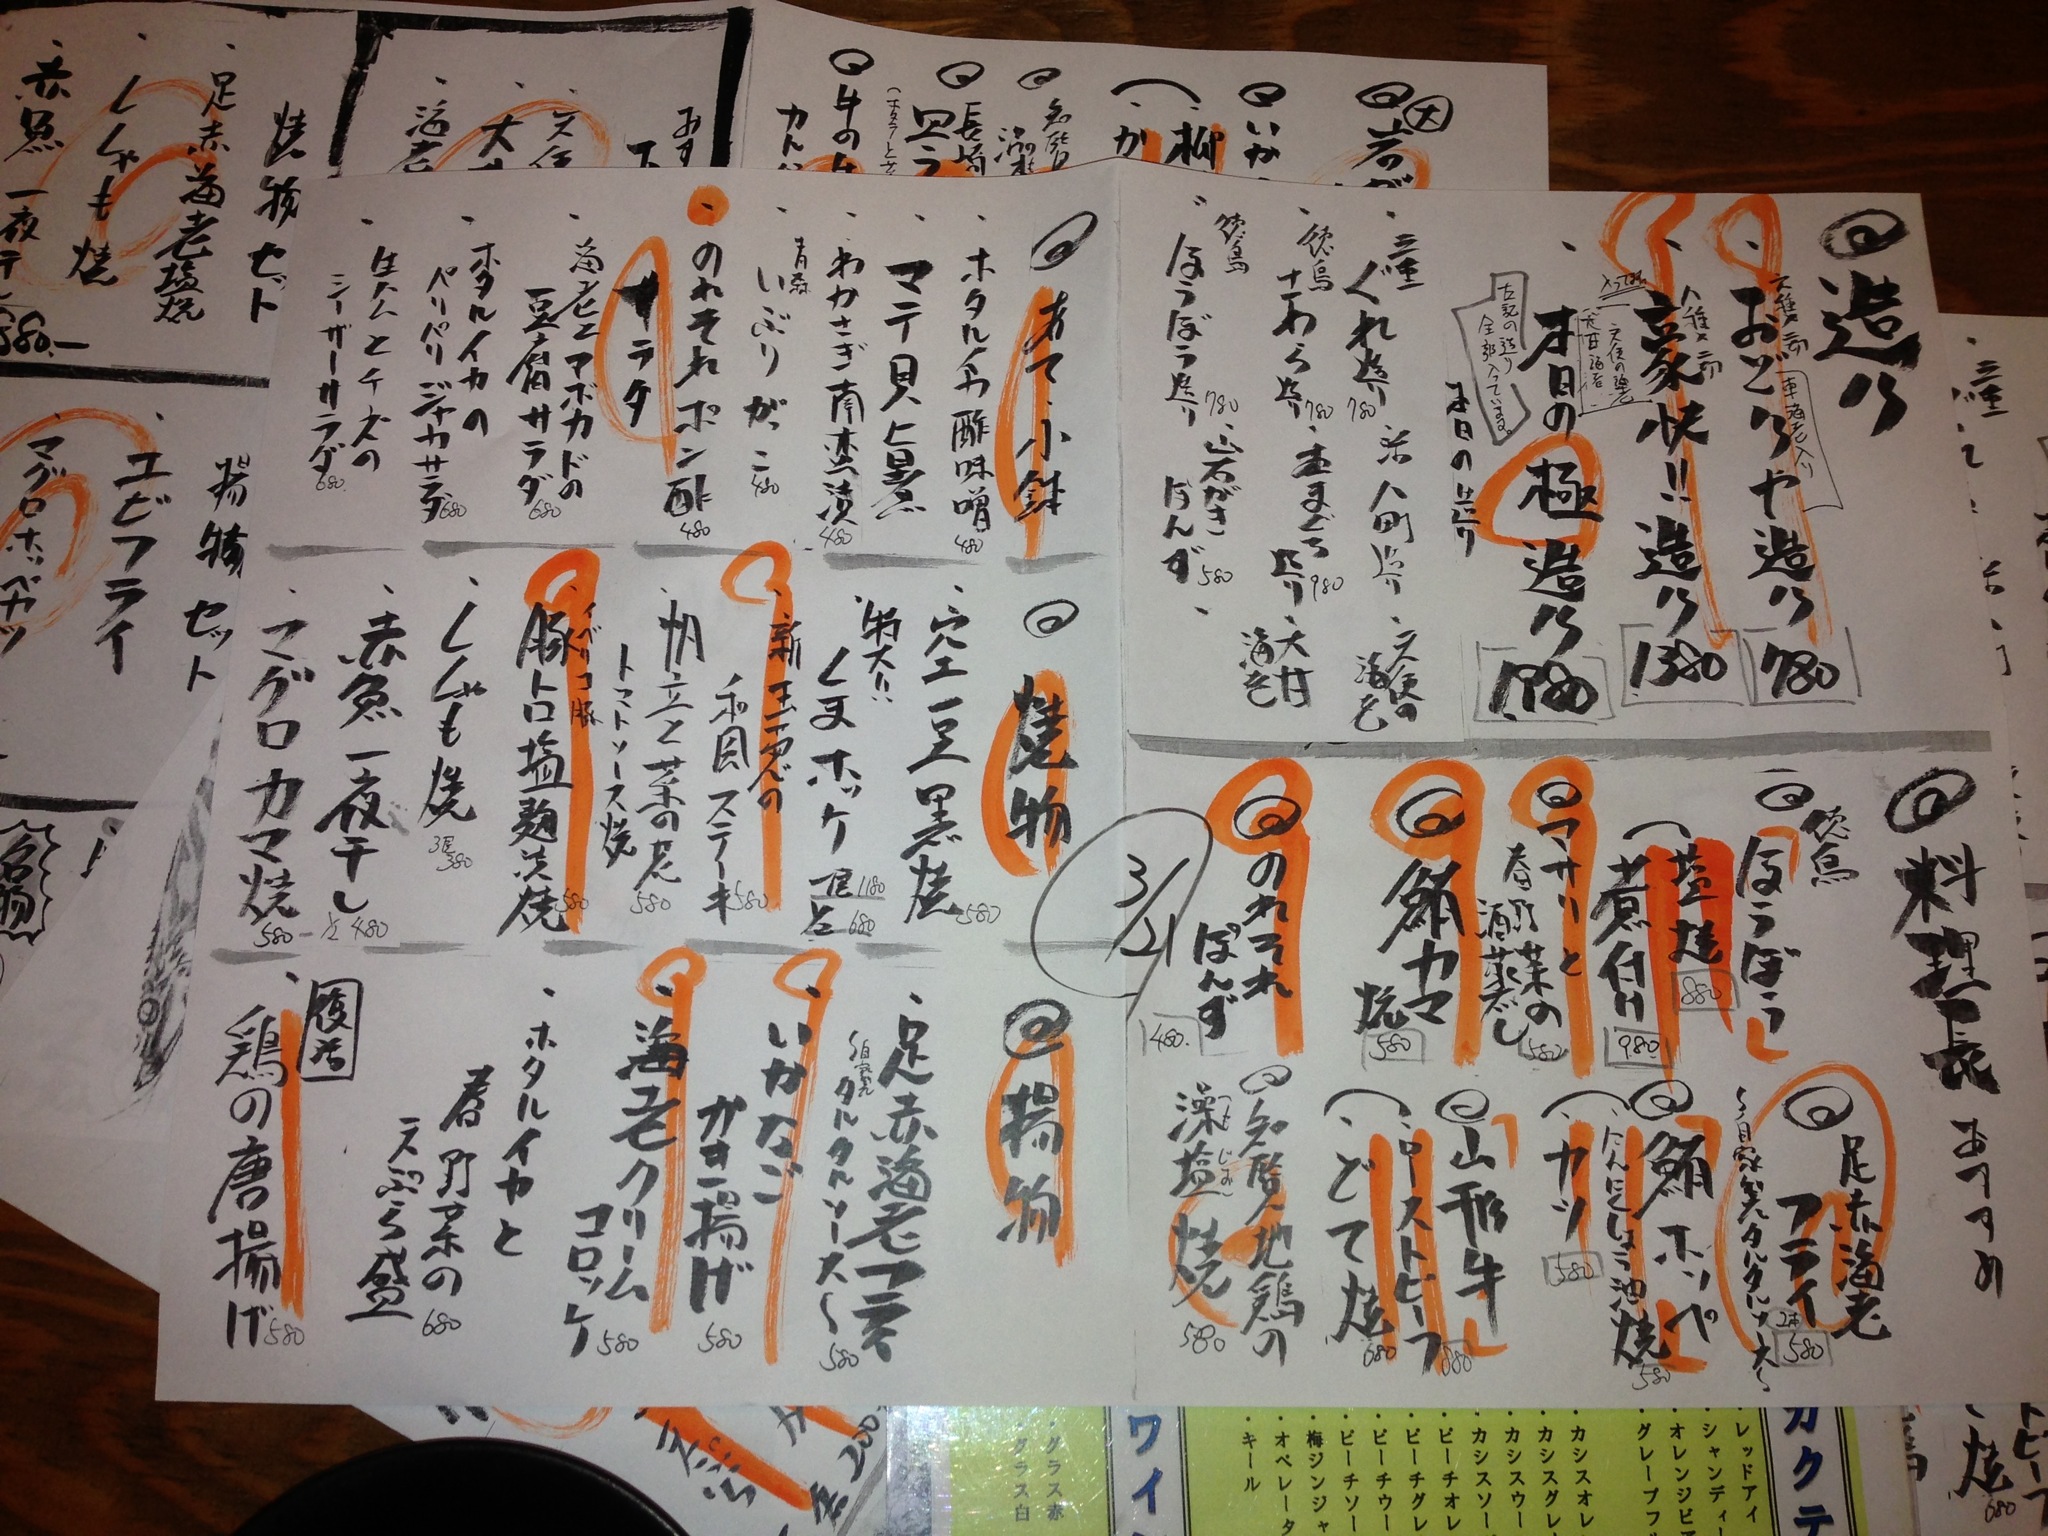 造り
おどりや造り
780
豪快!!造り
1380
本日の極造り
1980
左記の造り
全部入っています。
本日の造り
三重
ぐれ造り
780
天使の
海老
徳島
さわら造り
780
生まぐろ造り
980
大甘
海老
徳島
ほうぼう造り
780
岩がき
ぽんず
580
料理長おすすめ
徳島
ほうぼう
塩焼
880
煮付け
980
アサリと
春野菜の
酒蒸し
580
鮪カマ
焼
580
のれそれ
ぽんず
480
足赤海老
フライ
2本
580
〜自家製タルタルソース〜
鮪ホッペ
にんにくしょう油焼
580
カツ
580
山形牛
ローストビーフ
880
どて焼
680
知覧地鶏の
藻塩焼
580
3/21
あて・小鉢
ホタルイカ酢味噌
480
マテ貝上黒
わかさぎ南蛮漬
480
青森
いぶりがっこ
480
のれそれポン酢
480
サラダ
海老とアボカドの
豆腐サラダ
680
ホタルイカの
パリパリジャガサラダ
680
生ハムとチーズの
シーザーサラダ
680
焼物
空豆黒焼
580
特大!!
しまホッケ
一尾
1180
半
680
新玉ねぎの
和風ステーキ
580
帆立と菜の花
トマトソース焼
580
イベリコ豚
豚トロ塩麹漬焼
580
ししゃも焼
3尾
380
赤魚一夜干し
1/2
480
マグロカマ焼
580
揚物
足赤海老フライ
〜自家製タルタルソース〜
580
いかなご
かき揚げ
580
海老クリーム
コロッケ
580
ホタルイカと
春野菜の
天ぷら盛
680
復活
鶏の唐揚げ
580
焼物セット
足赤海老塩焼
ししゃも焼
赤魚一夜干し
580.ー
揚物セット
エビフライ
マグロホッペカツ
名物
カクテ
・レッドアイ
・シャンディー
・オレンジビア
・グレープフル
・カシスオレ
・カシスグレ
・カシスウー
・カシスソー
・ピーチオレ
・ピーチグレ
・ピーチウー
・ピーチソー
・梅ジンジャ
・オペレータ
・キール
ワイ
・グラス赤
・グラス白